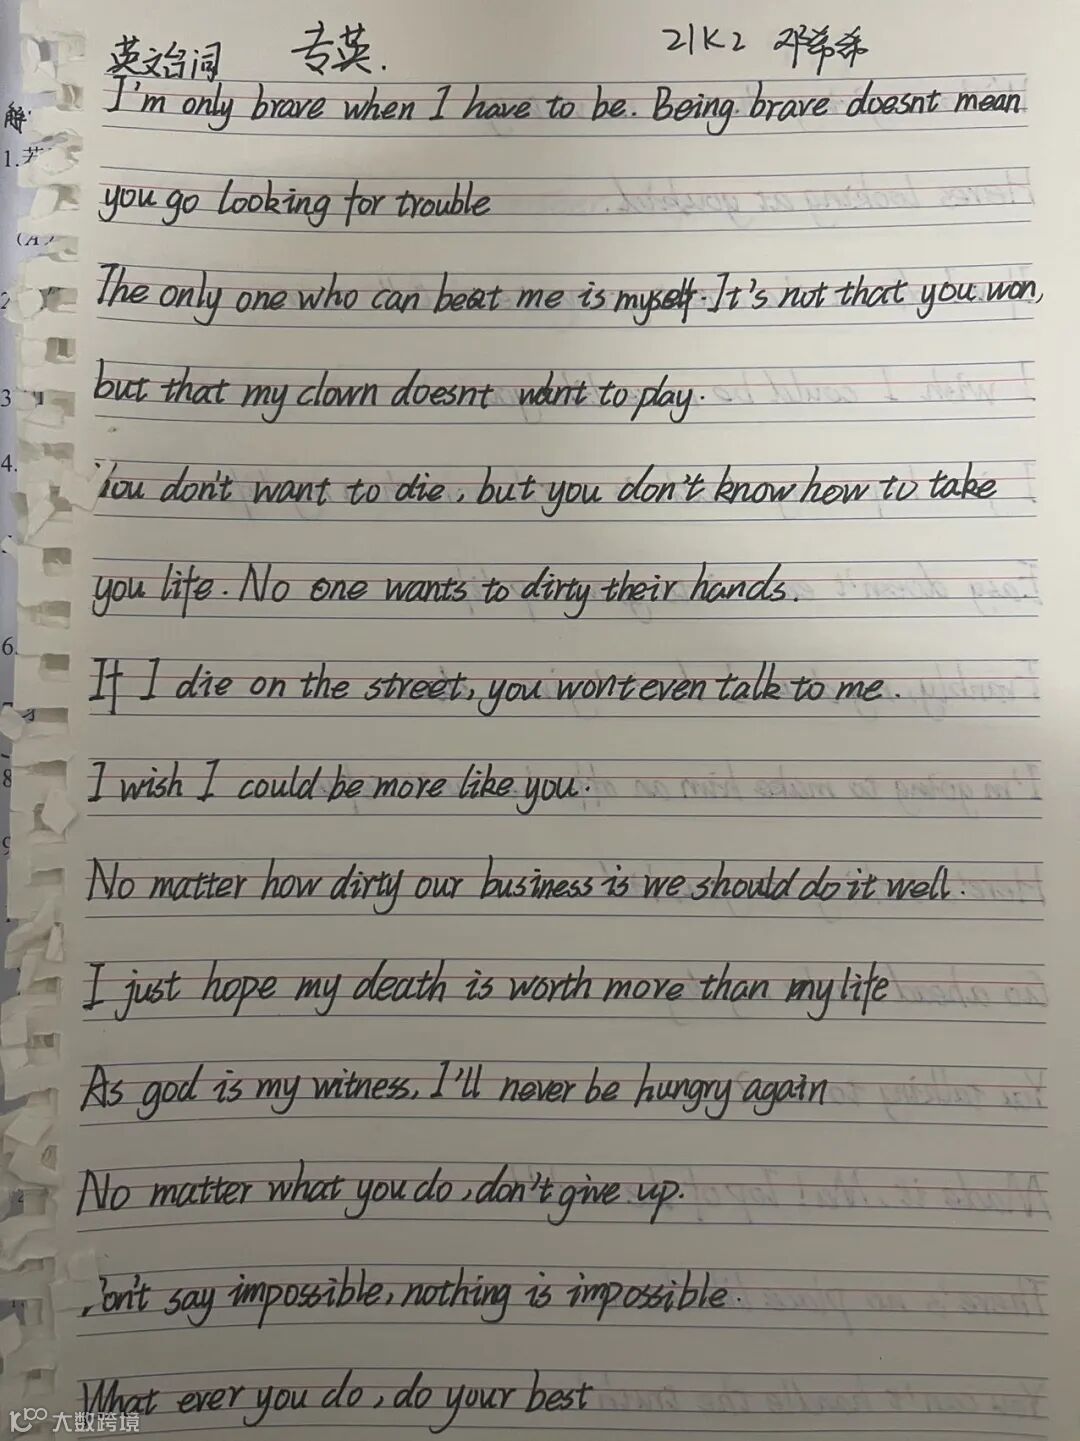 英文台词 专英. 21K2 邓希希
I'm only brave when I have to be. Being brave doesnt mean
you go looking for trouble
The only one who can beat me is myself. It's not that you won,
but that my clown doesnt want to play.
You don't want to die, but you don't know how to take
you life. No one wants to dirty their hands.
If I die on the street, you wont even talk to me.
I wish I could be more like you.
No matter how dirty our business is we should do it well.
I just hope my death is worth more than my life
As god is my witness, I'll never be hungry again
No matter what you do, don't give up.
Don't say impossible, nothing is impossible.
What ever you do, do your best
大数跨境